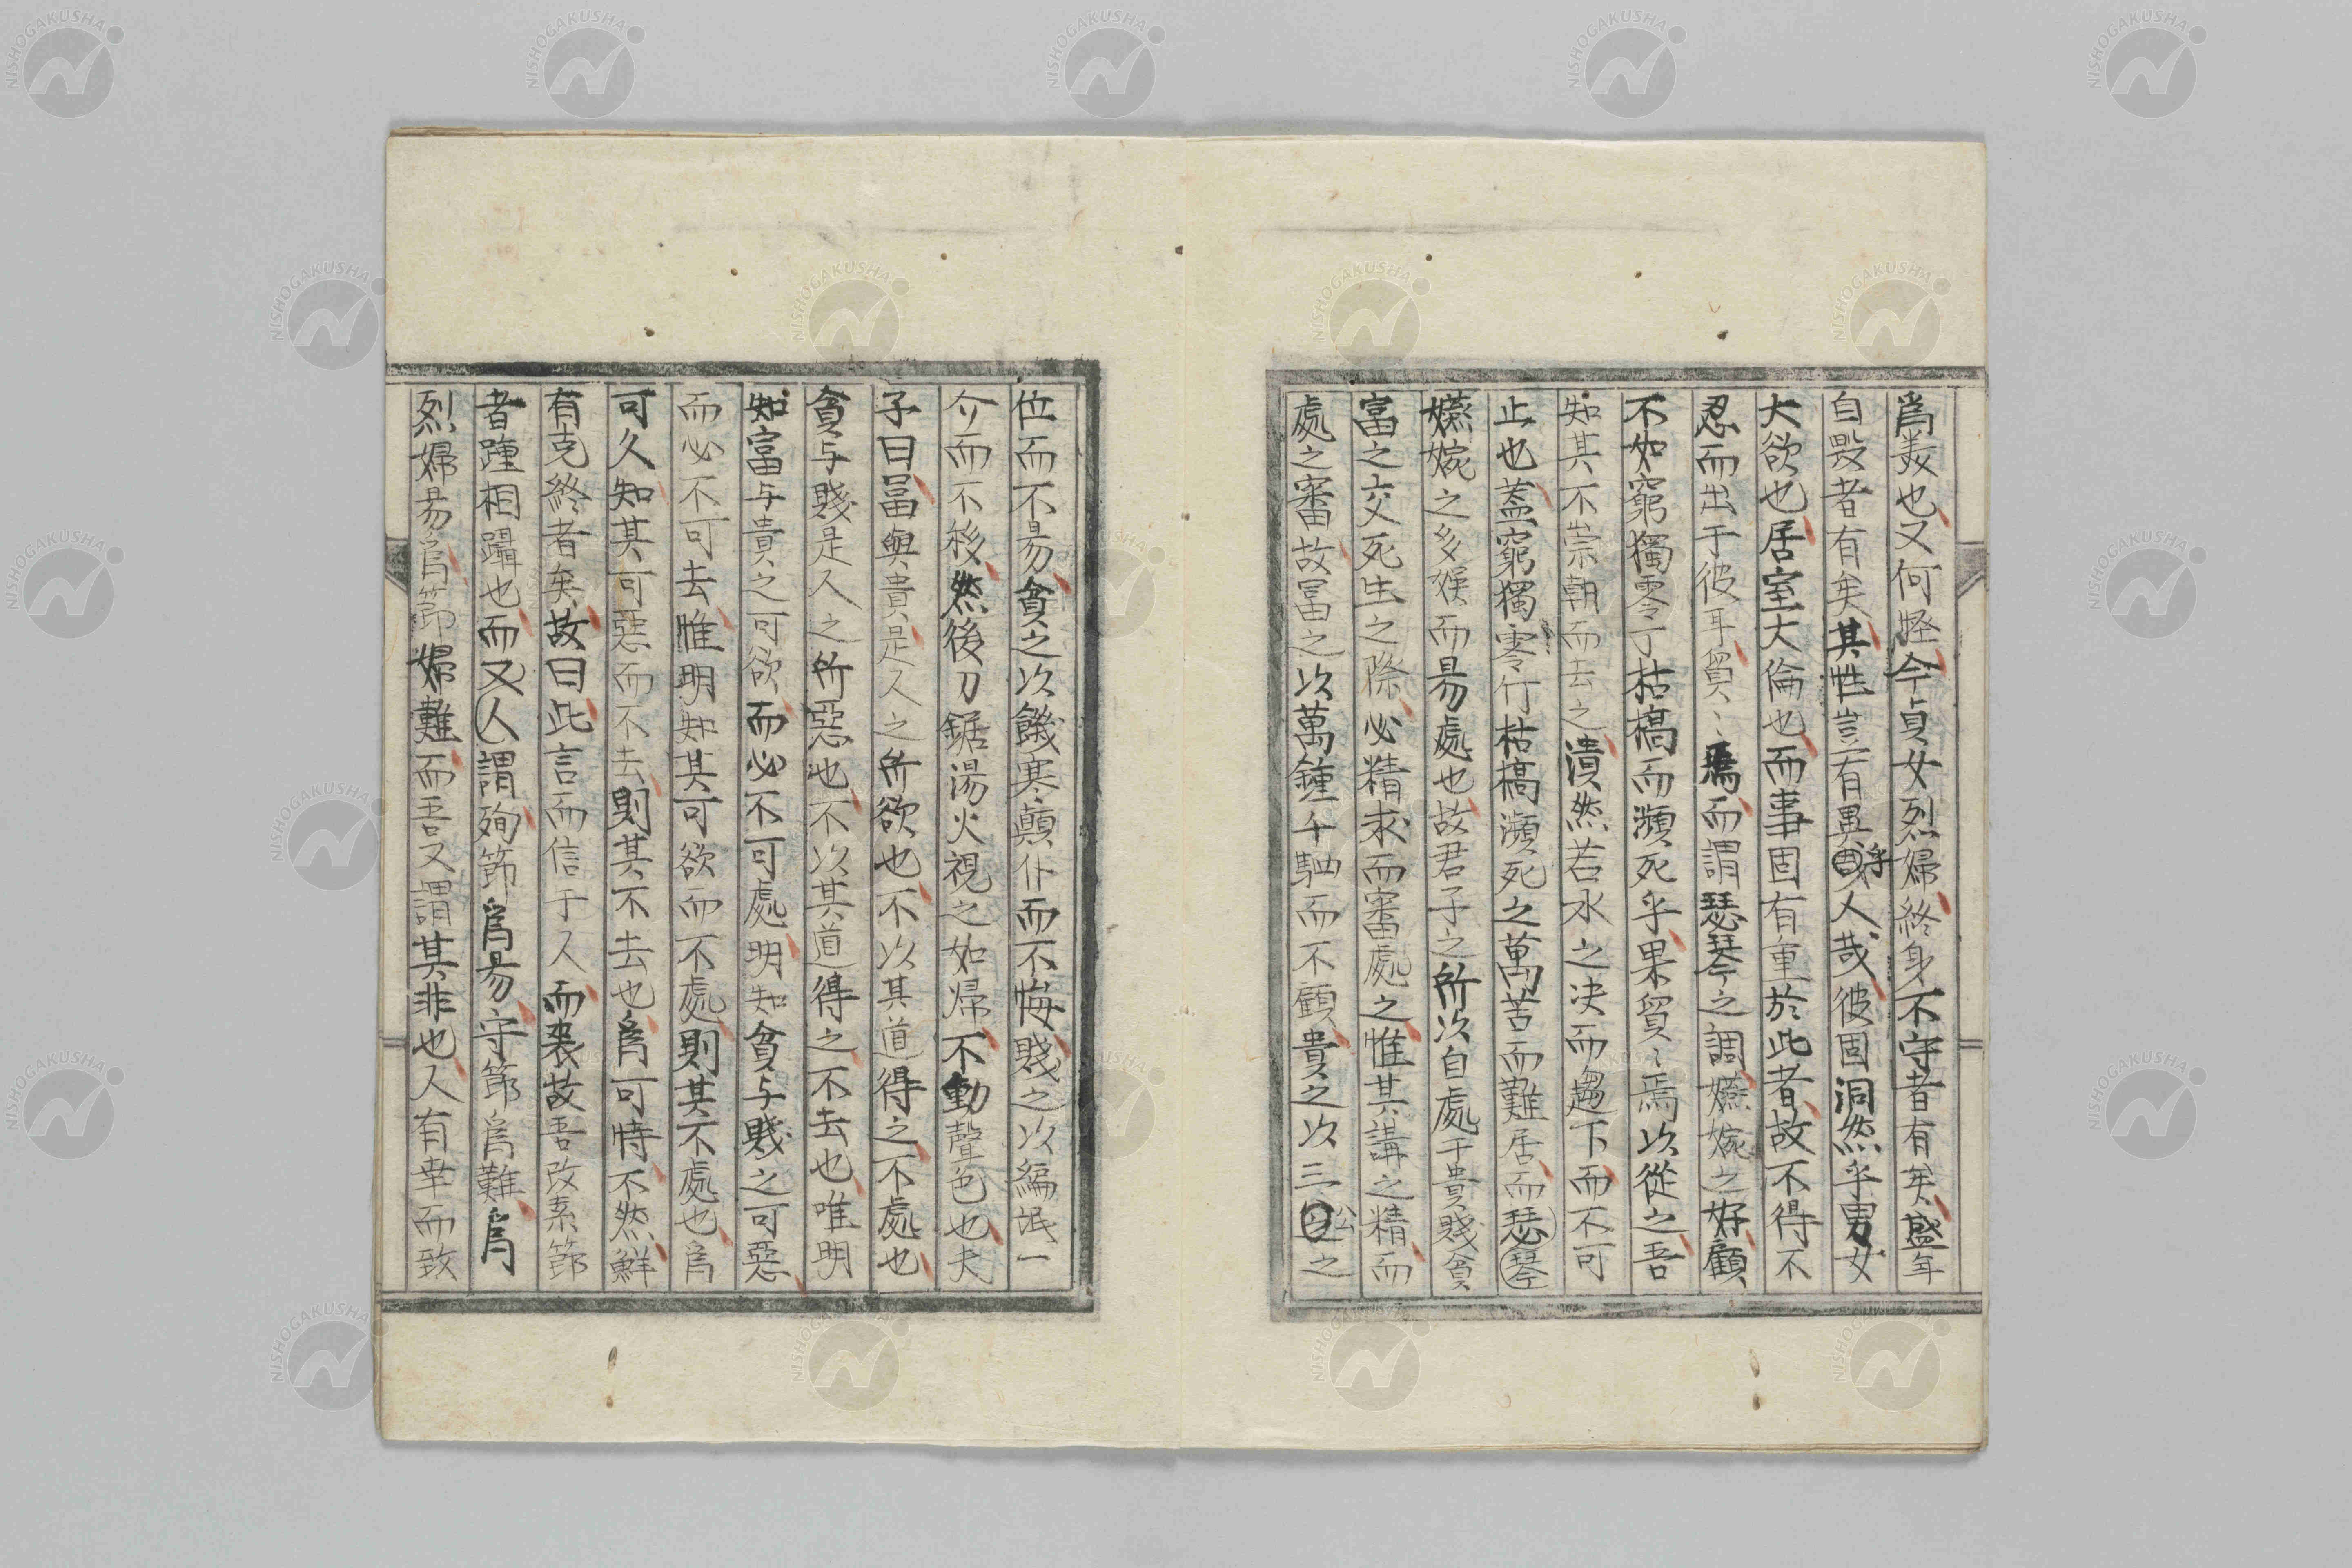 爲美也又何怪今貞女烈婦終身不守者有矣盛年
自毀者有矣其性豈有異乎人哉彼固洞然乎男女
大欲也居室大倫也而事固有重於此者故不得不
忍而出于彼耳貿〻焉而謂瑟琴之調嬿婉之好顧
不如窮獨零丁枯槁而瀕死乎果貿〻焉以從之吾
知其不崇朝而去之潰然若水之决而趨下而不可
止也蓋窮獨零仃枯槁瀕死之萬苦而難居而瑟琴
嬿婉之多娛而易處也故君子之所以自處于貴賤貧
富之交死生之際必精求而審處之惟其講之精而
處之審故富之以萬鍾千駟而不顧貴之以三公之
位而不易貧之以饑寒顛仆而不悔賤之以編氓一
介而不移然後刀鋸湯火視之如歸不動聲色也夫
子曰富與貴是人之所欲也不以其道得之不處也
貧与賤是人之所惡也不以其道得之不去也唯明
知富与貴之可欲而必不可處明知貧与賤之可惡
而必不可去惟明知其可欲而不處則其不處也爲
可久知其可惡而不去則其不去也爲可恃不然鮮
有克終者矣故曰此言而信于人而裘故吾改素節
者踵相躡也而又人謂殉節爲易守節爲難爲
烈婦易爲節婦難而吾又謂其非也人有幸而致
NISHOGAKUSHA